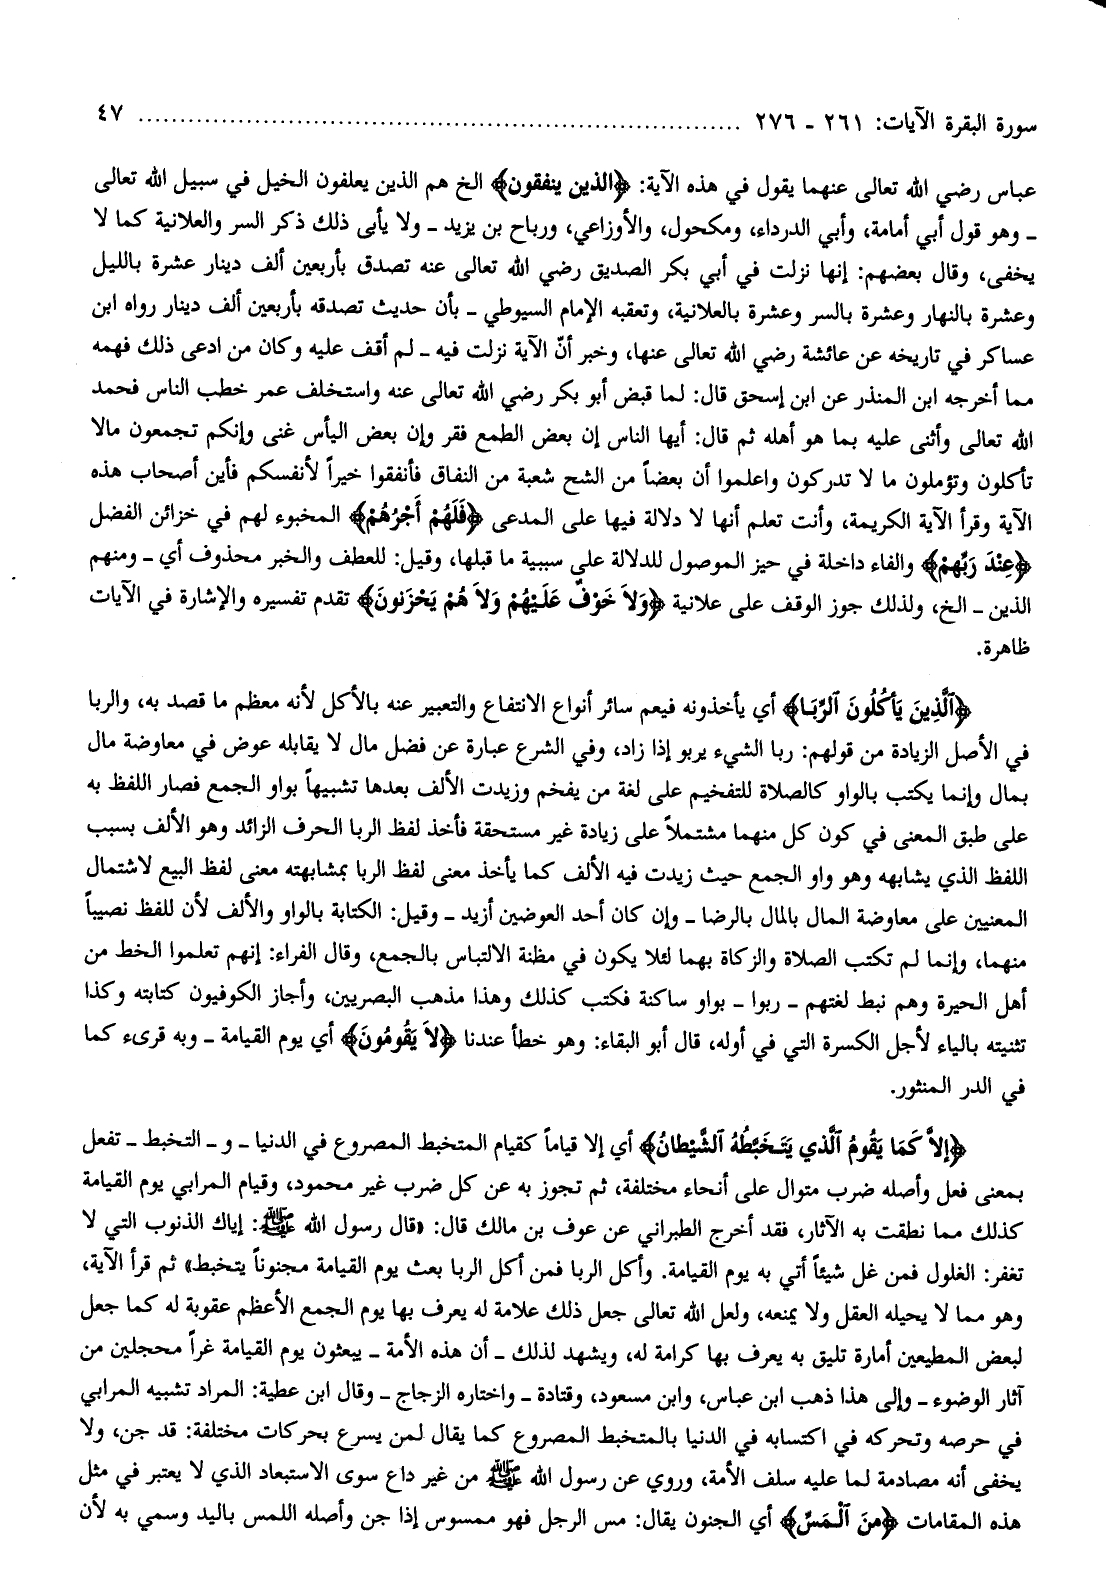 سورة البقرة الآيات: ٢٦١ ـ ٢٧٦ ........................................................................ ٤٧
عباس رضي الله تعالى عنهما يقول في هذه الآية: ﴿الذين ينفقون﴾ الخ هم الذين يعلفون الخيل في سبيل الله تعالى
ـ وهو قول أبي أمامة، وأبي الدرداء، ومكحول، والأوزاعي، ورباح بن يزيد ـ ولا يأبى ذلك ذكر السر والعلانية كما لا
يخفى، وقال بعضهم: إنها نزلت في أبي بكر الصديق رضي الله تعالى عنه تصدق بأربعين ألف دينار عشرة بالليل
وعشرة بالنهار وعشرة بالسر وعشرة بالعلانية، وتعقبه الإمام السيوطي ـ بأن حديث تصدقه بأربعين ألف دينار رواه ابن
عساكر في تاريخه عن عائشة رضي الله تعالى عنها، وخبر أنّ الآية نزلت فيه ـ لم أقف عليه وكان من ادعى ذلك فهمه
مما أخرجه ابن المنذر عن ابن إسحق قال: لما قبض أبو بكر رضي الله تعالى عنه واستخلف عمر خطب الناس فحمد
الله تعالى وأثنى عليه بما هو أهله ثم قال: أيها الناس إن بعض الطمع فقر وإن بعض اليأس غنى وإنكم تجمعون مالا
تأكلون وتؤملون ما لا تدركون واعلموا أن بعضاً من الشح شعبة من النفاق فأنفقوا خيراً لأنفسكم فأين أصحاب هذه
الآية وقرأ الآية الكريمة، وأنت تعلم أنها لا دلالة فيها على المدعى ﴿فَلَهُمْ أَجْرُهُمْ﴾ المخبوء لهم في خزائن الفضل
﴿عِنْدَ رَبِّهِمْ﴾ والفاء داخلة في حيز الموصول للدلالة على سببية ما قبلها، وقيل: للعطف والخبر محذوف أي ـ ومنهم
الذين ـ الخ، ولذلك جوز الوقف على علانية ﴿وَلاَ خَوْفٌ عَلَيْهِمْ وَلاَ هُمْ يَحْزَنونَ﴾ تقدم تفسيره والإشارة في الآيات
ظاهرة.
﴿ٱلَّذِينَ يَأكُلُونَ ٱلرِّبَـا﴾ أي يأخذونه فيعم سائر أنواع الانتفاع والتعبير عنه بالأكل لأنه معظم ما قصد به، والربا
في الأصل الزيادة من قولهم: ربا الشيء يربو إذا زاد، وفي الشرع عبارة عن فضل مال لا يقابله عوض في معاوضة مال
بمال وإنما يكتب بالواو كالصلاة للتفخيم على لغة من يفخم وزيدت الألف بعدها تشبيهاً بواو الجمع فصار اللفظ به
على طبق المعنى في كون كل منهما مشتملاً على زيادة غير مستحقة فأخذ لفظ الربا الحرف الزائد وهو الألف بسبب
اللفظ الذي يشابهه وهو واو الجمع حيث زيدت فيه الألف كما يأخذ معنى لفظ الربا بمشابهته معنى لفظ البيع لاشتمال
المعنيين على معاوضة المال بالمال بالرضا ـ وإن كان أحد العوضين أزيد ـ وقيل: الكتابة بالواو والألف لأن للفظ نصيباً
منهما، وإنما لم تكتب الصلاة والزكاة بهما لئلا يكون في مظنة الالتباس بالجمع، وقال الفراء: إنهم تعلموا الخط من
أهل الحيرة وهم نبط لغتهم ـ ربوا ـ بواو ساكنة فكتب كذلك وهذا مذهب البصريين، وأجاز الكوفيون كتابته وكذا
تثنيته بالياء لأجل الكسرة التي في أوله، قال أبو البقاء: وهو خطأ عندنا ﴿لاَ يَقُومُونَ﴾ أي يوم القيامة ـ وبه قرىء كما
في الدر المنثور.
﴿إلاَّ كَمَا يَقُومُ ٱلَّذي يَتَخَبَّطُهُ ٱلشَّيْطانُ﴾ أي إلا قياماً كقيام المتخبط المصروع في الدنيا ـ و ـ التخبط ـ تفعل
بمعنى فعل وأصله ضرب متوال على أنحاء مختلفة، ثم تجوز به عن كل ضرب غير محمود، وقيام المرابي يوم القيامة
كذلك مما نطقت به الآثار، فقد أخرج الطبراني عن عوف بن مالك قال: «قال رسول الله ﷺ: إياك الذنوب التي لا
تغفر: الغلول فمن غل شيئاً أتي به يوم القيامة. وأكل الربا فمن أكل الربا بعث يوم القيامة مجنوناً يتخبط» ثم قرأ الآية،
وهو مما لا يحيله العقل ولا يمنعه، ولعل الله تعالى جعل ذلك علامة له يعرف بها يوم الجمع الأعظم عقوبة له كما جعل
لبعض المطيعين أمارة تليق به يعرف بها كرامة له، ويشهد لذلك ـ أن هذه الأمة ـ يبعثون يوم القيامة غراً محجلين من
آثار الوضوء ـ وإلى هذا ذهب ابن عباس، وابن مسعود، وقتادة ـ واختاره الزجاج ـ وقال ابن عطية: المراد تشبيه المرابي
في حرصه وتحركه في اكتسابه في الدنيا بالمتخبط المصروع كما يقال لمن يسرع بحركات مختلفة: قد جن، ولا
يخفى أنه مصادمة لما عليه سلف الأمة، وروي عن رسول الله ﷺ من غير داع سوى الاستبعاد الذي لا يعتبر في مثل
هذه المقامات ﴿منَ ٱلْمَسِّ﴾ أي الجنون يقال: مس الرجل فهو ممسوس إذا جن وأصله اللمس باليد وسمي به لأن